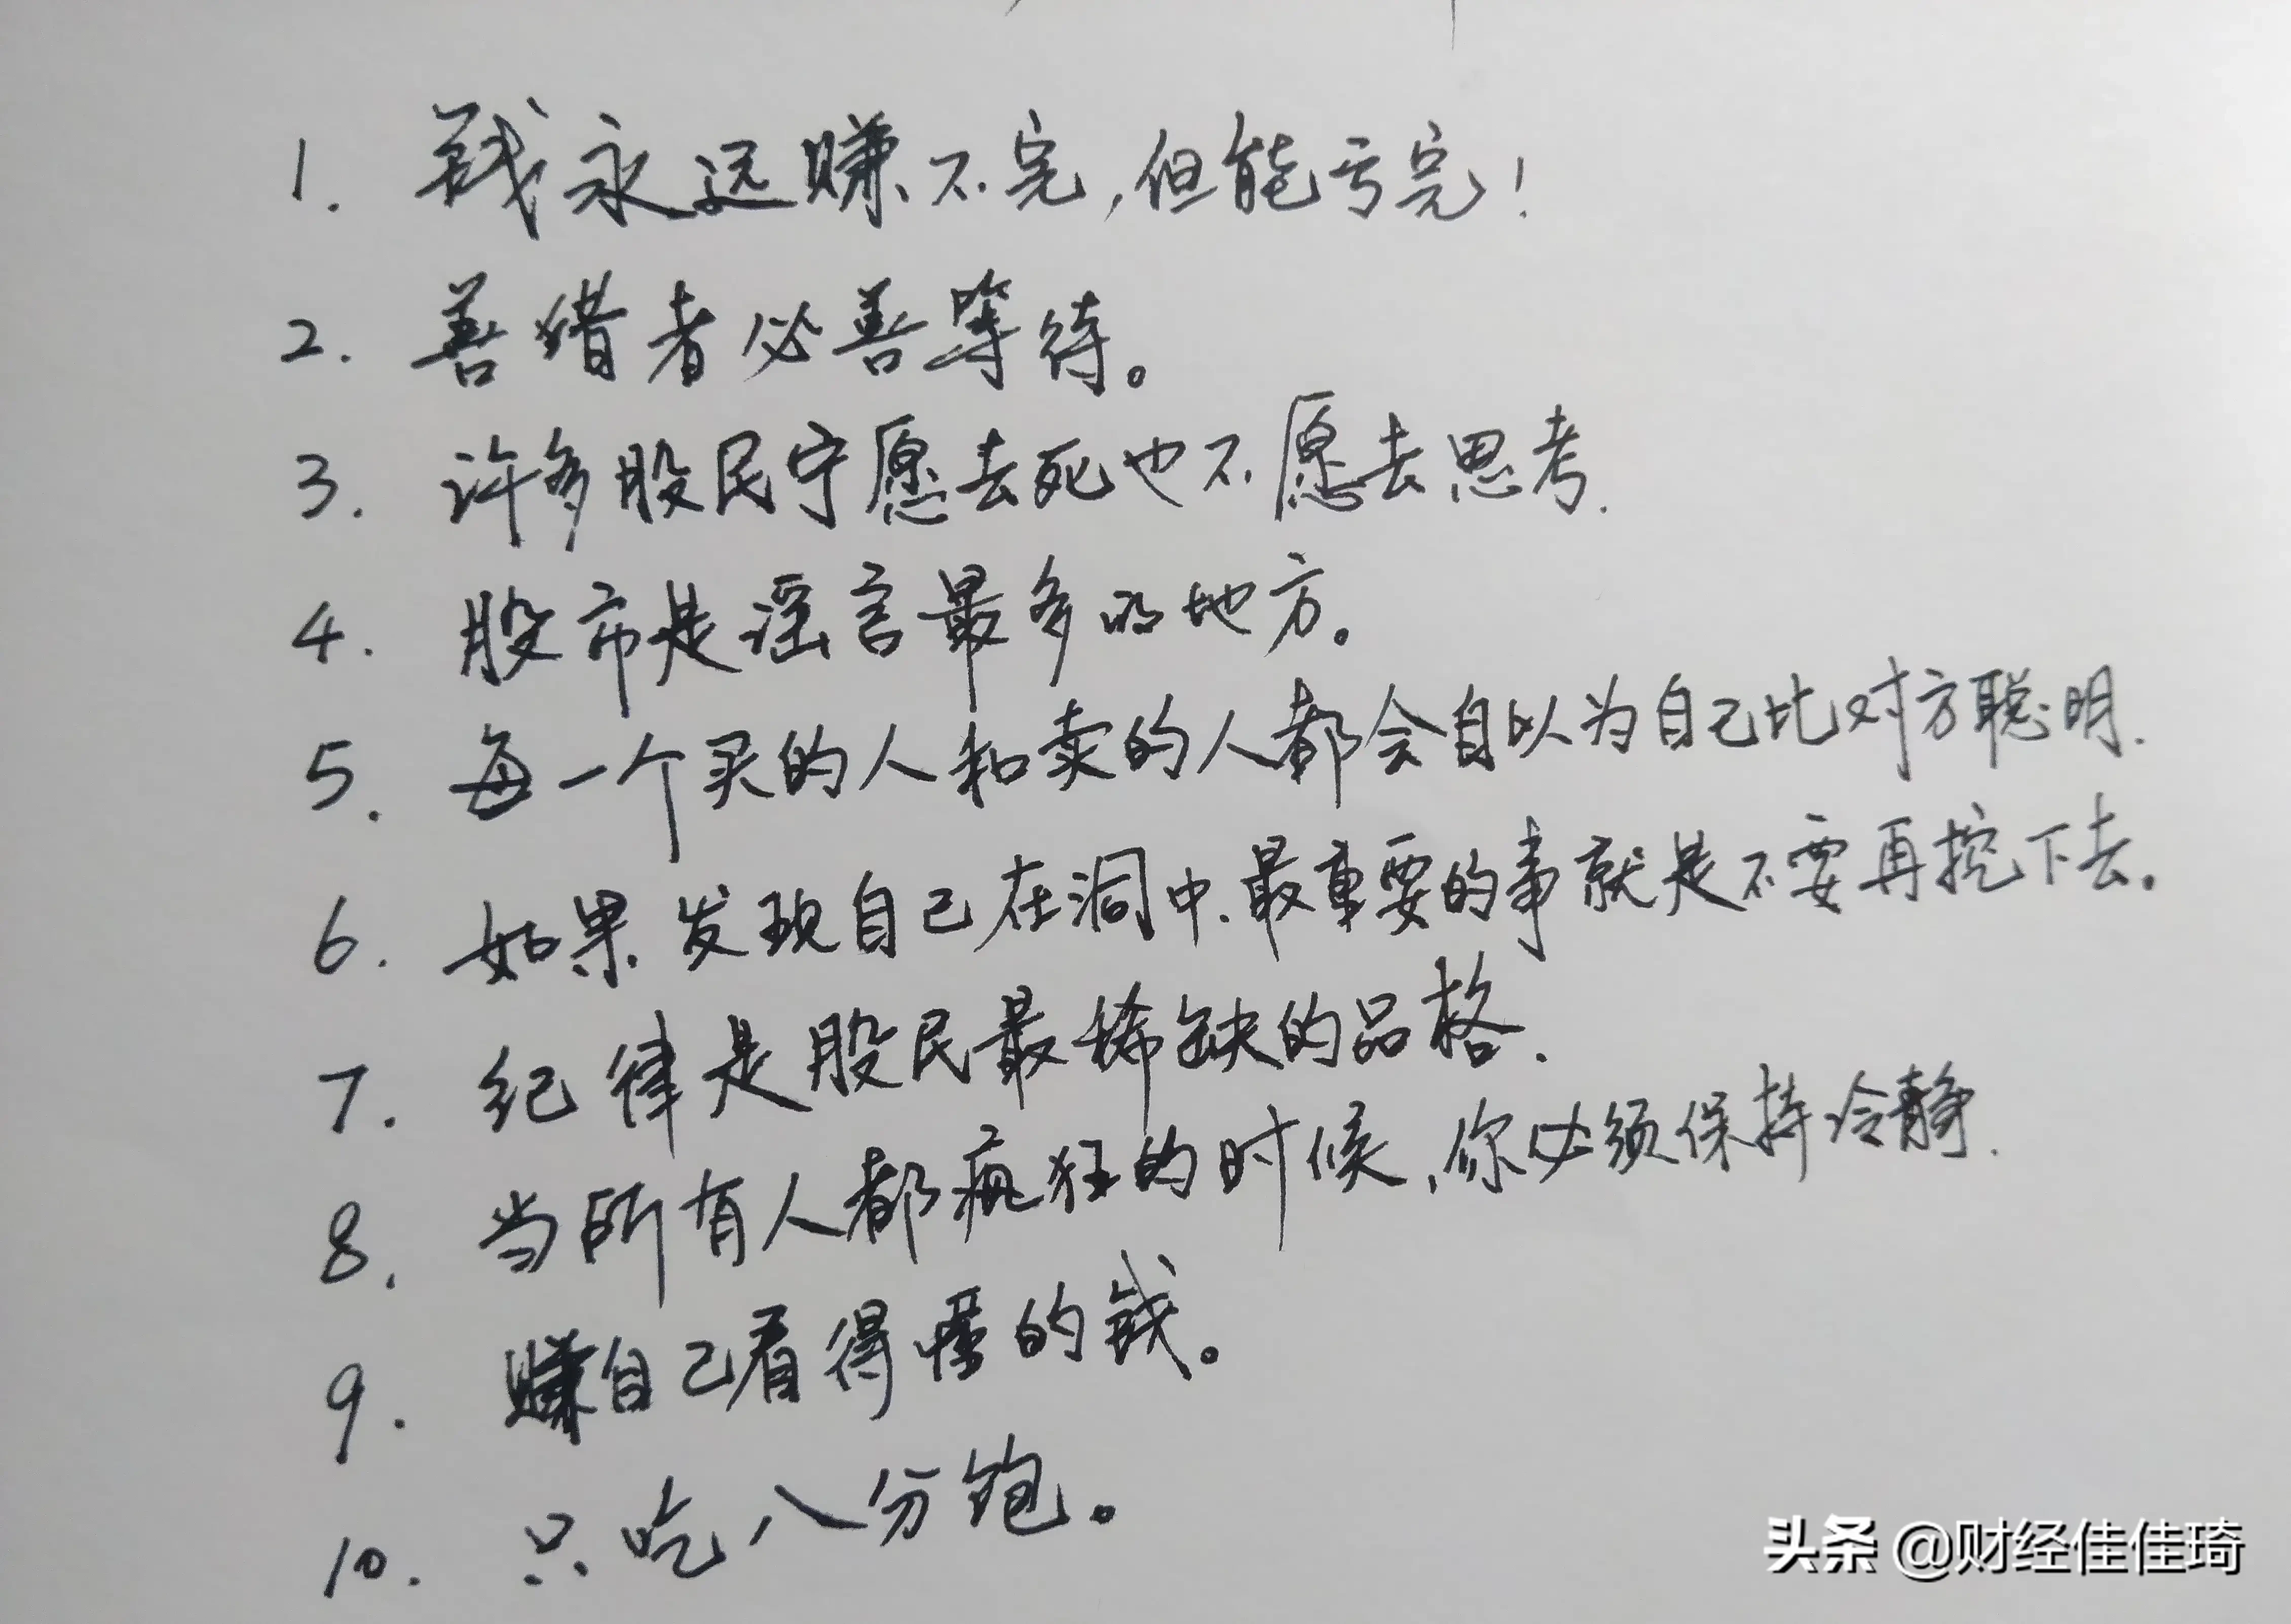 1. 钱永远赚不完,但能亏完!
2. 善猎者必善等待。
3. 许多股民宁愿去死也不愿去思考.
4. 股市是谣言最多的地方。
5. 每一个买的人和卖的人都会自以为自己比对方聪明.
6. 如果发现自己在洞中.最重要的事就是不要再挖下去。
7. 纪律是股民最稀缺的品格.
8. 当所有人都疯狂的时候,你必须保持冷静.
9. 赚自己看得懂的钱。
10. 只吃八分饱。
头条 @财经佳佳琦